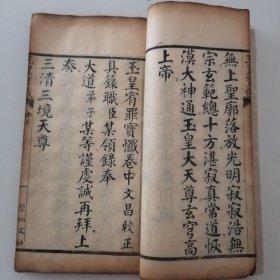 無上聖廓落放光明寂寂浩無
宗玄範總十方湛寂真常道恢
漠大神通玉皇大天尊玄穹高
上帝
玉皇宥罪寶懺卷中文昌較正
真錄職臣某領錄奉
大道弟子某等謹虔誠再拜上
奏
三清三境天尊